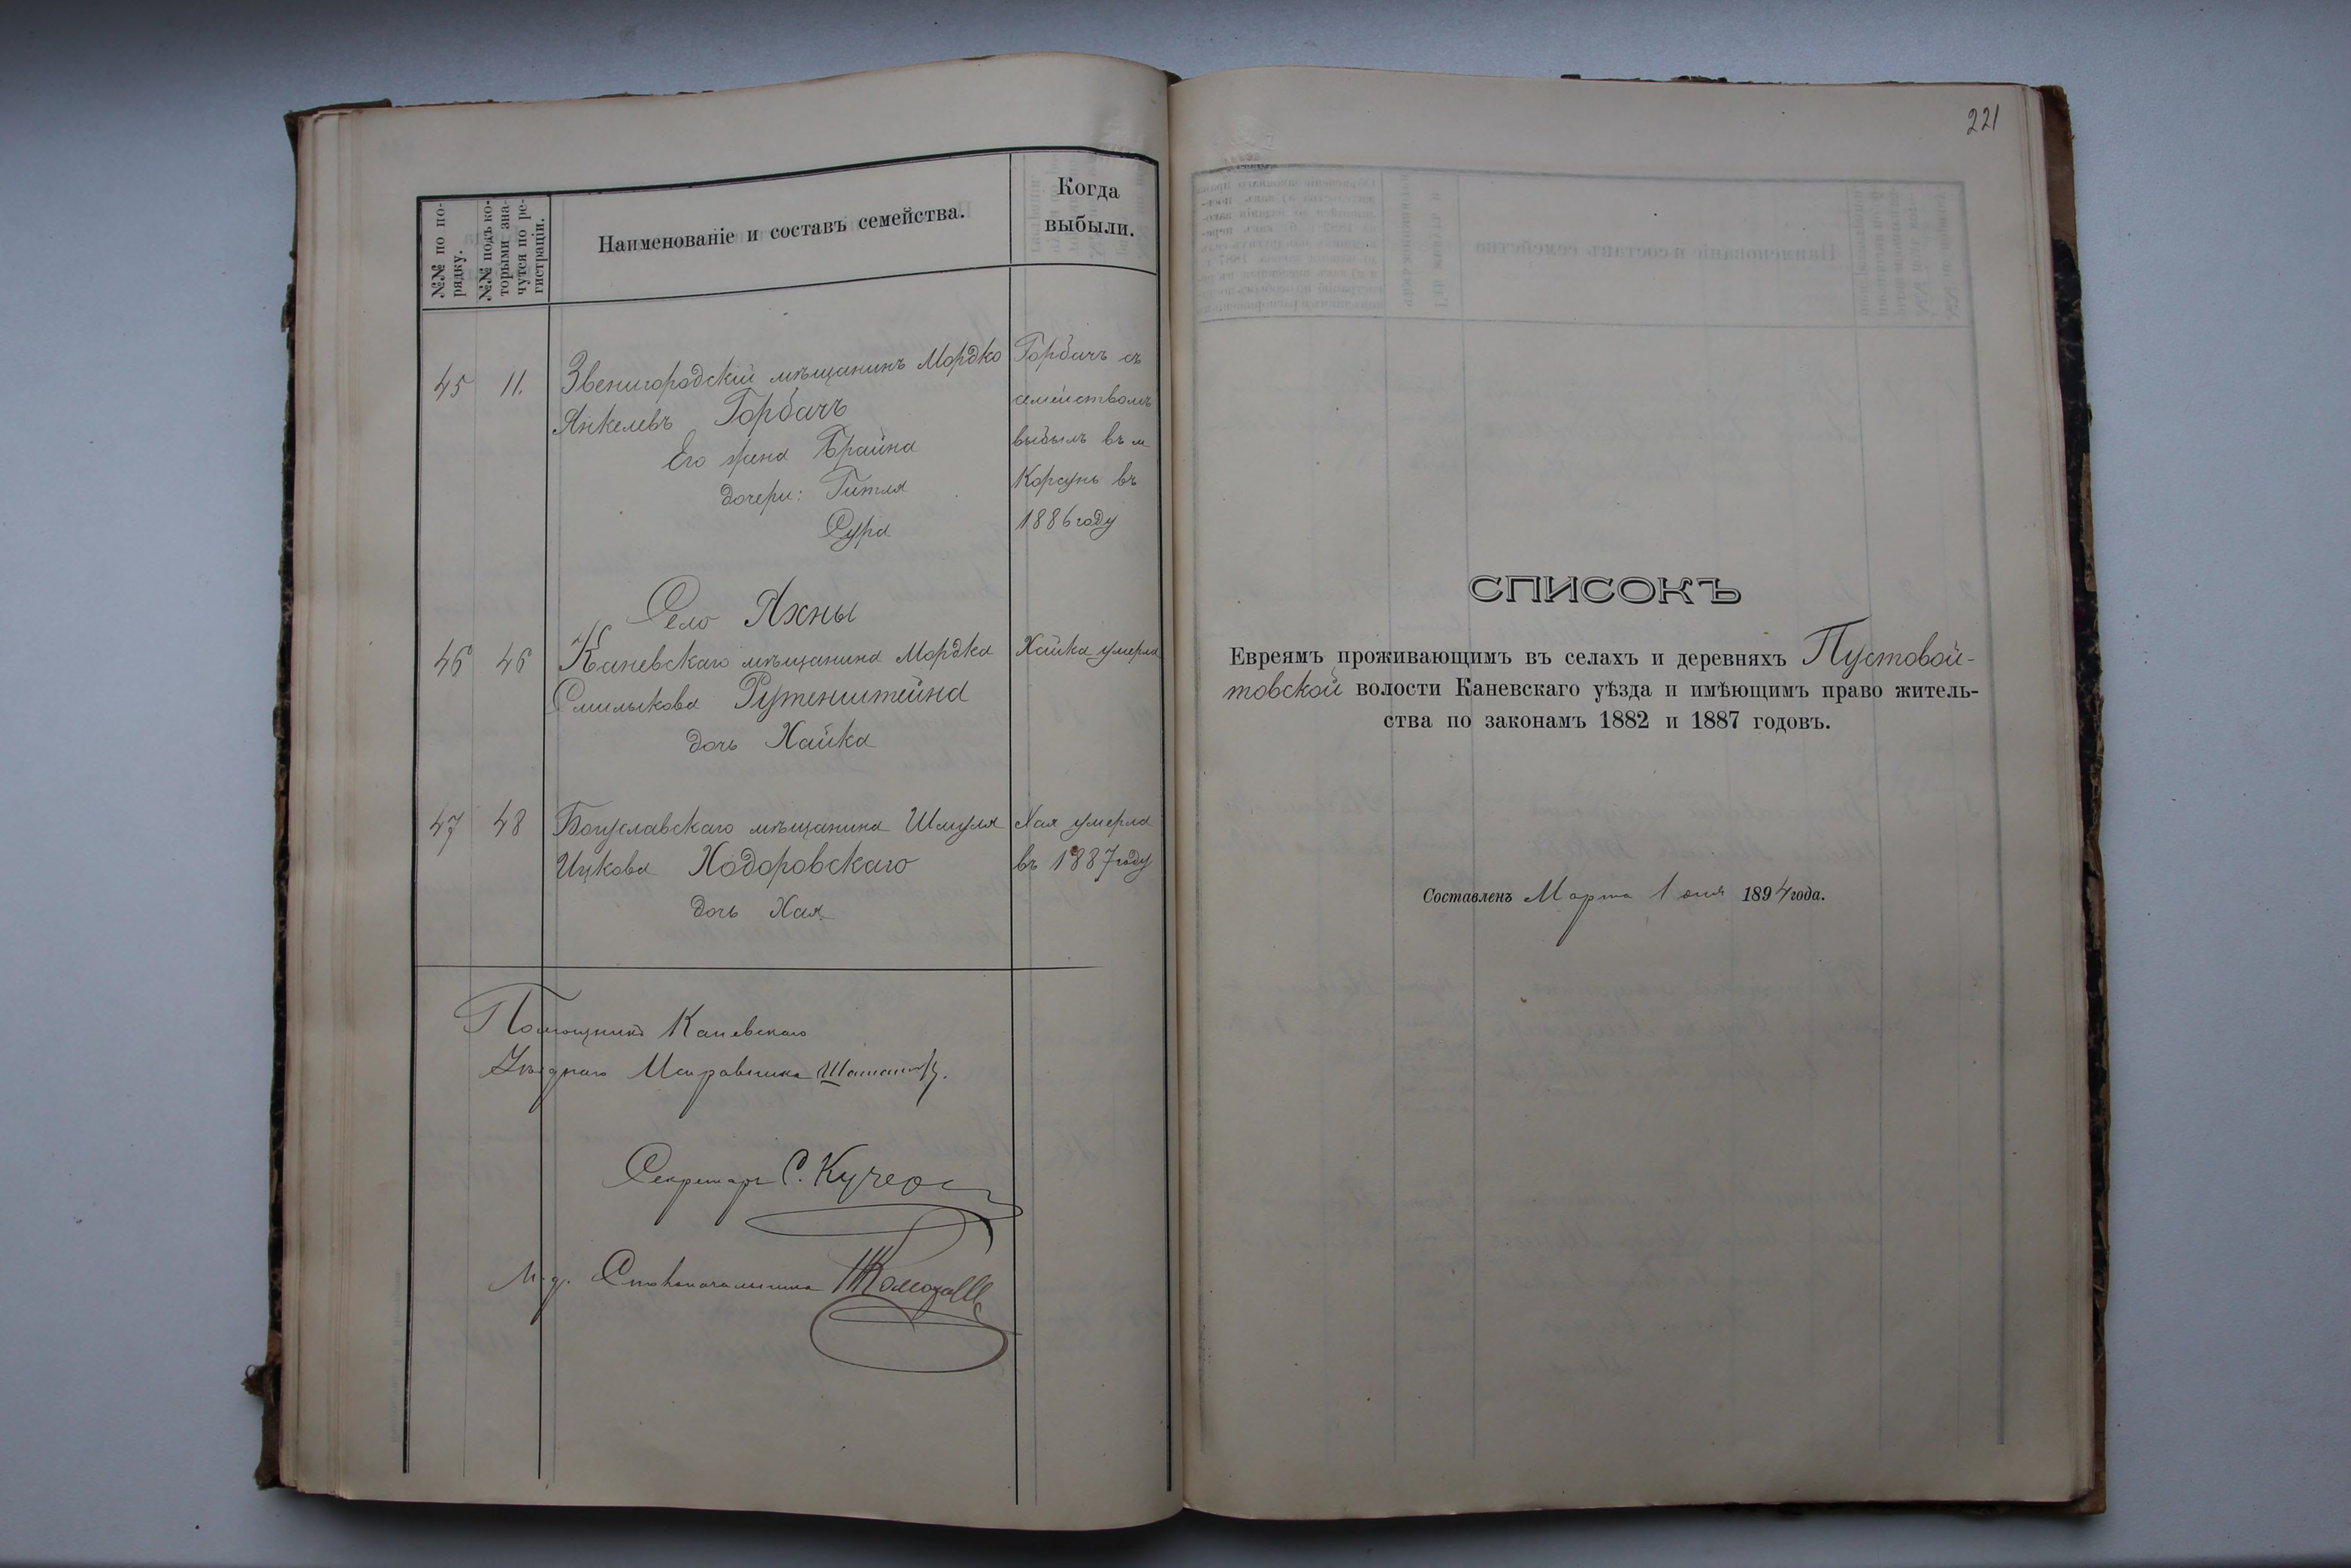 №№ по по-
рядку.
№№ подъ ко-
торыми зна-
чутся по ре-
гистраціи.
Наименованіе и составъ семейства.
Когда
выбыли.
45 11. Звенигородскій мѣщанинъ Мордко
Янкелевъ Горбачъ
Его жена Брайна
дочери: Гитля
Сура
Горбачъ съ
семействомъ
выбылъ въ м
Корсунь въ
1886 году
Село Яхны
46 46 Каневскаго мѣщанина Мордка
Смилькова Рутенштейна
дочь Хайка
Хайка умерла
47 48 Богуславскаго мѣщанина Шмуля
Ицкова Ходоровскаго
дочь Хая
Хая умерла
въ 1887 году
Помощникъ Каневскаго
Уѣзднаго Исправника
Секретарь С. Кучеро
И. д. Столоначальника
221
СПИСОКЪ
Евреямъ проживающимъ въ селахъ и деревняхъ Пустовой-
товской волости Каневскаго уѣзда и имѣющимъ право житель-
ства по законамъ 1882 и 1887 годовъ.
Составленъ Марта 1 дня 1894 года.